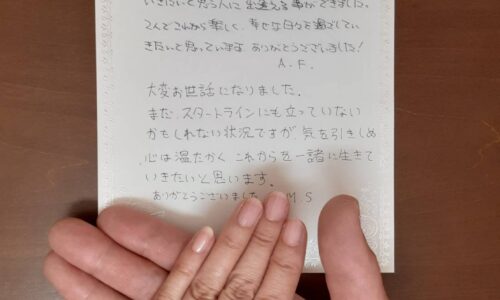 いきたいと思う人に出逢える事ができました。
2人でこれから楽しく、幸せな日々を過ごしてい
きたいと思っています。ありがとうございました!
A.F.
大変お世話になりました。
まだ、スタートラインにも立っていない
かもしれない状況ですが、気を引きしめ
心は温たかく これからを一緒に生きて
いきたいと思います。
ありがとうございました M.S